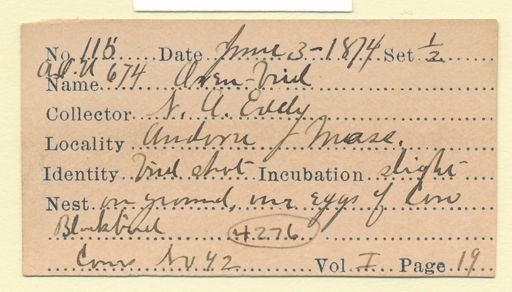 No. 115 Date June 3-1874 Set 1/2
A.O.U 674
Name Oven-bird
Collector N. A. Eddy
Locality Andover, Mass.
Identity bird shot Incubation slight
Nest on ground, eggs of Cow
Blackbird 4276
No 42 Vol. I Page 19